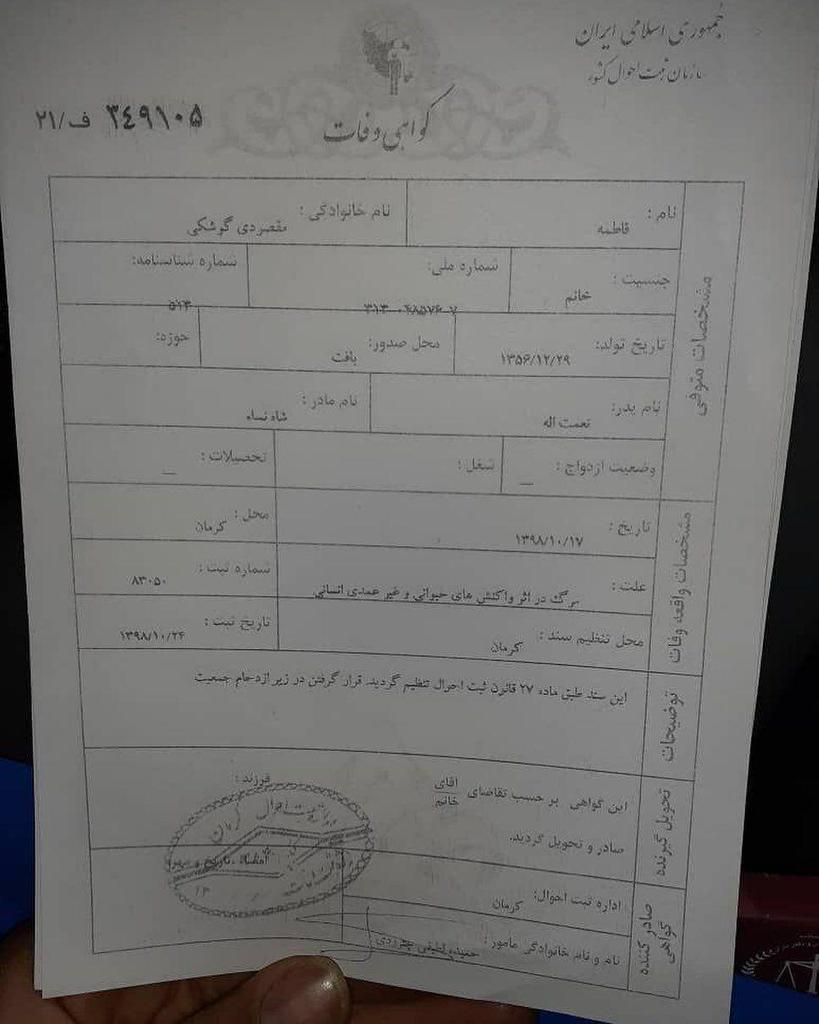 جمهوری اسلامی ایران
سازمان ثبت احوال کشور
گواهی وفات
۳۴۹۱۰۵ ف/۲۱
مشخصات متوفی
نام : فاطمه
نام خانوادگی : مقصودی گوشکی
جنسیت : خانم
شماره ملی:
شماره شناسنامه: ۵۱۳
تاریخ تولد: ۱۳۵۶/۱۲/۲۹
محل صدور: بافت
حوزه:
نام پدر: نعمت اله
نام مادر : شاه نساء
وضعیت ازدواج : __
شغل :
تحصیلات : __
مشخصات واقعه وفات
تاریخ : ۱۳۹۸/۱۰/۱۷
محل : کرمان
علت : مرگ در اثر واکنش های حیوانی و غیر عمدی انسانی
شماره ثبت : ۸۳۰۵۰
محل تنظیم سند : کرمان
تاریخ ثبت : ۱۳۹۸/۱۰/۲۴
توضیحات
این سند طبق ماده ۲۷ قانون ثبت احوال تنظیم گردید. قرار گرفتن در زیر ازدحام جمعیت
تحویل گیرنده
این گواهی بر حسب تقاضای آقای خانم
فرزند :
صادر و تحویل گردید.
امضاء ،تاریخ و مهر
صادر کننده گواهی
اداره ثبت احوال: کرمان
نام و نام خانوادگی مامور : حمیده لطیفی